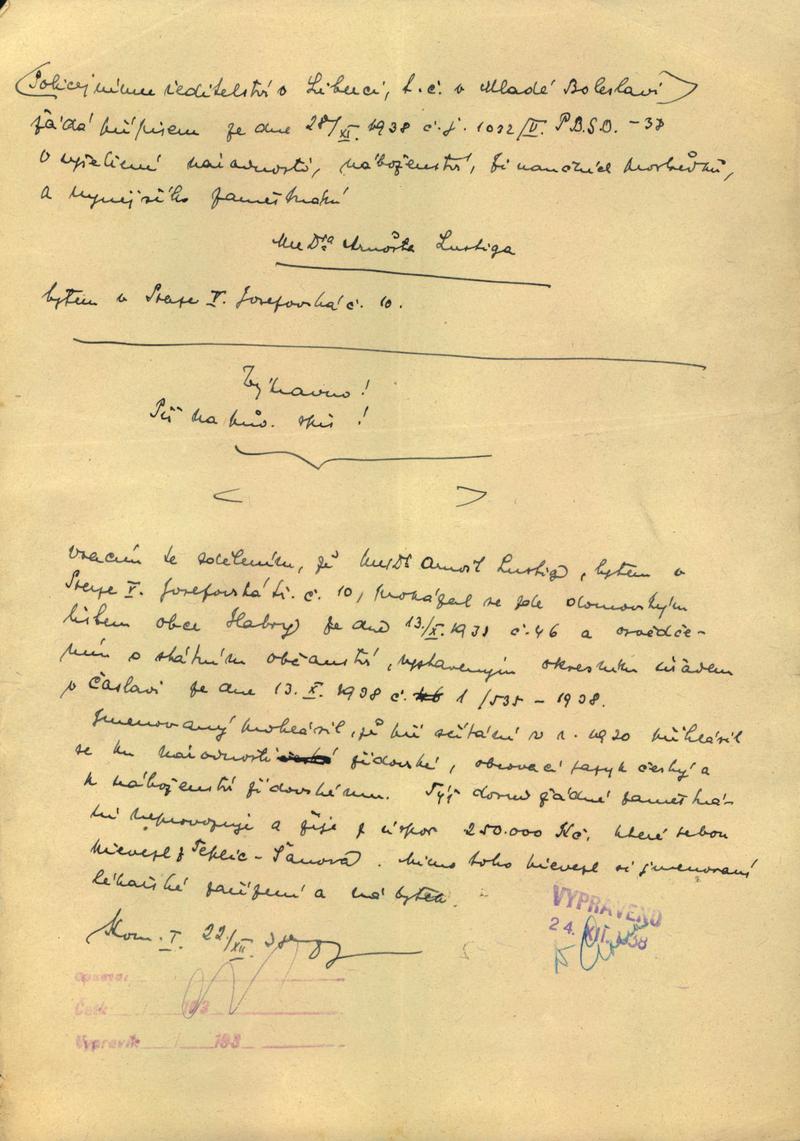 Policejnímu ředitelství v Liberci, t. č. v Mladé Boleslavi
žádá přípisem ze dne 28/XI. 1938 č. j. 1092/II. P.B.S.D. - 38
o vyšetření národnosti, náboženství, finančních prostředků,
a nynějšího zaměstnání
MUDra Arnošta Lustiga
bytem v Praze V. Josefovská č. 10.
Tý havno!
Piš na pův. spis!
Vracím se sdělením, že MUDr Arnošt Lustig, bytem v
Praze V. Josefovská tř. č. 10, prokázal se zde domovským
listem obce Habry ze dne 13/X. 1938 č. 46 a osvědče-
ním o státním občanství, vystaveným okresním úřadem
v Čáslavi ze dne 13. X. 1938 č. 1/535 - 1938.
Jmenovaný prohlásil, že při sčítání v r. 1930 přihlásil
se ku národnosti židovské, obcovací jazyk český a
k náboženství židovskému. Týž dosud žádné zaměstná-
ní neprovozuje a žije z úspor 250.000 Kč, které sebou
přivezl z Teplic-Šanova. Mimo toho přivezl si jmenovaný
lékařské zařízení a nábytek.
Kom. I. 22/XII. 38
VYPRAVENO
24. XII. 1938
Opsáno:
Četl: 193
Vypravil: 193